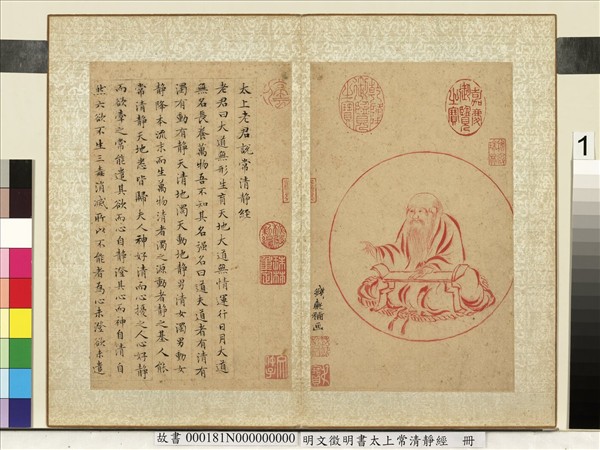 太上老君說常清靜經
老君曰大道無形生育天地大道無情運行日月大道
無名長養萬物吾不知其名強名曰道夫道者有清有
濁有動有靜天清地濁天動地靜男清女濁男動女
靜降本流末而生萬物清者濁之源動者靜之基人能
常清靜天地悉皆歸夫人神好清而心擾之人心好靜
而欲牽之常能遣其欲而心自靜澄其心而神自清自
然六欲不生三毒消滅所以不能者為心未澄欲未遣
嘉慶御覽之寶
乾隆御覽之寶
1
故書 000181N000000000 明文徵明書太上常清靜經 冊